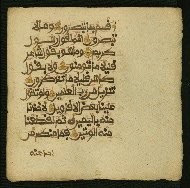 فلا أقسم بما تبصرون وما لا
تبصرون إنه لقول رسول
كريم وما هو بقول شاعر
قليلا ما تؤمنون ولا بقول
كاهن قليلا ما تذكرون
تنزيل من رب العلمين ولو تقول
علينا بعض الأقاويل لأخذنا
منه باليمين ثم لقطعنا
منه الوتين فما منكم من